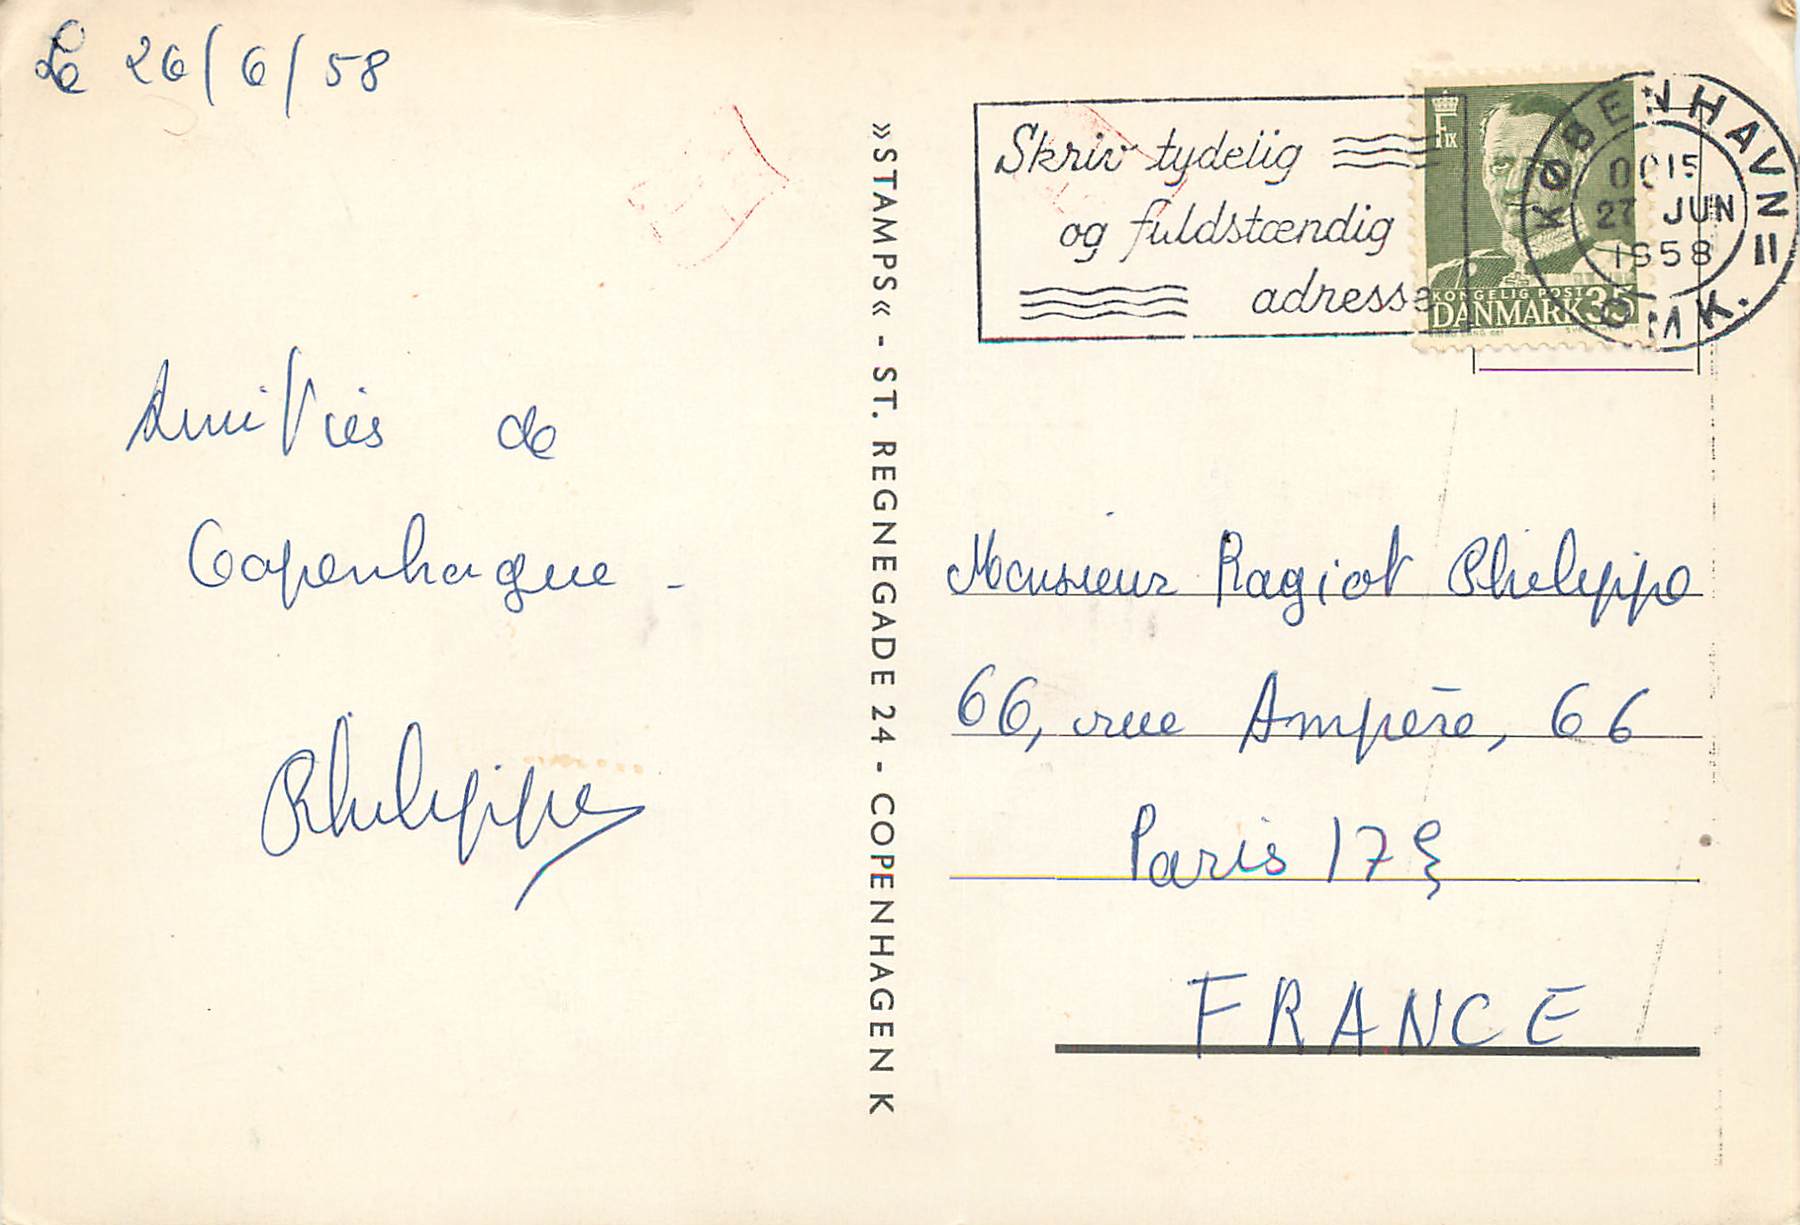 Le 26/6/58
Amitiés de
Copenhague -
Philippe
»STAMPS« - ST. REGNEGADE 24 - COPENHAGEN K
Skriv tydelig
og fuldstændig
adresse
F IX
KONGELIG POST
DANMARK 35
KØBENHAVN
OMK.
0015
27 JUN
1958
Monsieur Ragiot Philippe
66, rue Ampère, 66
Paris 17e
FRANCE